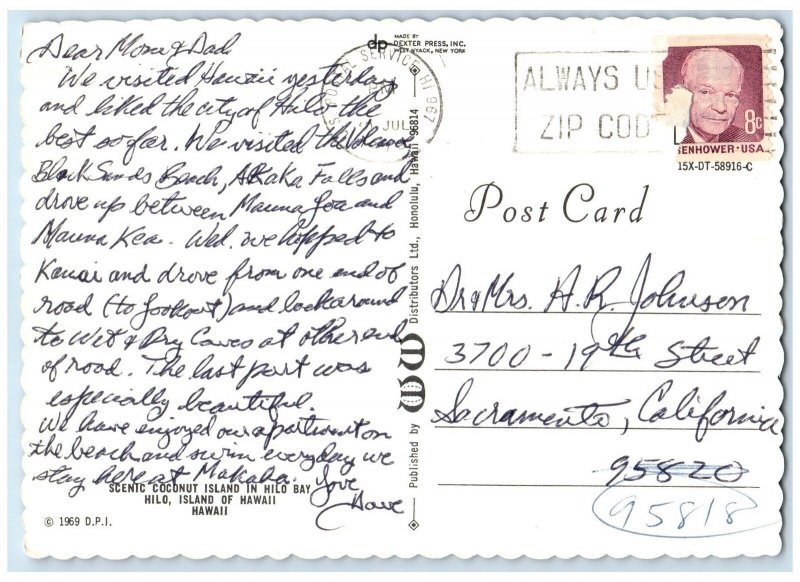 Dear Mom & Dad
We visited Hawaii yesterday
and liked the city of Hilo the
best so far. We visited the Volcano,
Black Sands Beach, AKaKa Falls and
drove up between Mauna Loa and
Mauna Kea. Wed. we hopped to
Kauai and drove from one end of
road (to lookout) and look around
to Wet & Dry Caves at other end
of road. The last part was
especially beautiful.
We have enjoyed our apartment on
the beach and swim everyday we
stay here at Makaha.
Love
Dave
SCENIC COCONUT ISLAND IN HILO BAY
HILO, ISLAND OF HAWAII
HAWAII
© 1969 D.P.I.
dp MADE BY
DEXTER PRESS, INC.
WEST NYACK, NEW YORK
POSTAL SERVICE HI 967
PM
JUL
Published by Distributors Ltd., Honolulu, Hawaii 96814
ALWAYS U
ZIP COD
8c
ENHOWER·USA
15X-DT-58916-C
Post Card
Dr & Mrs. A. R. Johnson
3700-19th Street
Sacramento, California
95820
95818